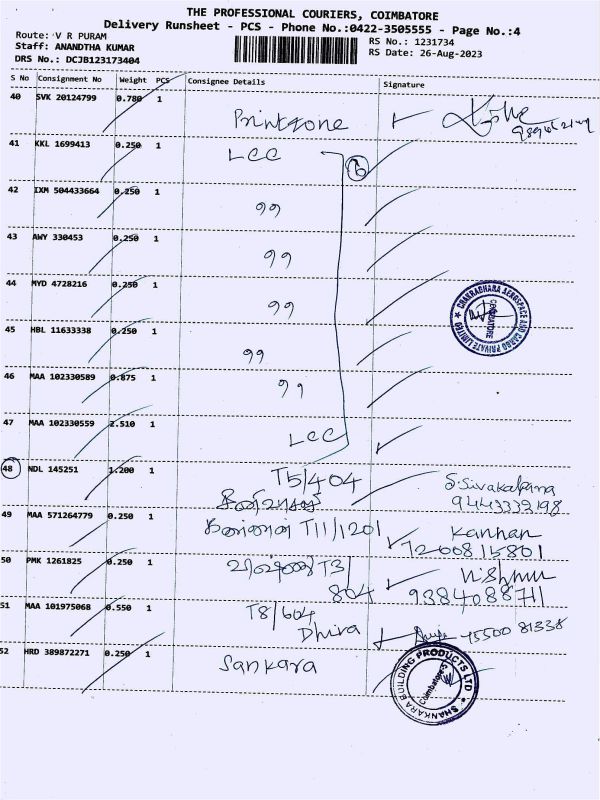 THE PROFESSIONAL COURIERS, COIMBATORE
Delivery Runsheet - PCS - Phone No.:0422-3505555 - Page No.:4
Route: V R PURAM
Staff: ANANDTHA KUMAR
DRS No.: DCJB123173404
RS No.: 1231734
RS Date: 26-Aug-2023
S No Consignment No Weight PCS Consignee Details Signature
40 SVK 20124799 0.780 1
Printzone
41 KKL 1699413 0.250 1 LCC 6
42 IXM 504433664 0.250 1 99
43 AWY 330453 0.250 1 99
44 MYD 4728216 0.250 1 99
CHAKRADHARA AEROSPACE AND CARGO PRIVATE LIMITED
COIMBATORE
45 HBL 11633338 0.250 1 99
46 MAA 102330589 0.875 1 99
47 MAA 102330559 2.510 1 LCC
48 NDL 145251 1.200 1 T5/404
9443332198
49 MAA 571264779 0.250 1 T11/1201 Kannan
7200815801
50 PMK 1261825 0.250 1 T3/
804 9384088711
51 MAA 101975068 0.550 1 T8/604
Dhira 45500 81338
52 HRD 389872271 0.250 1 Sankara
SHANKARA BUILDING PRODUCTS LTD
Coimbatore-5